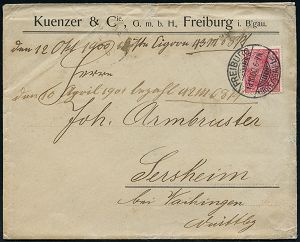 Kuenzer & Cie., G. m. b. H., Freiburg i. B'gau.
den 12 Okt 1900
Herrn
den April 1901 bezahlt 42 M
Joh. Armbruster
Sersheim
bei Vaihingen
Württbg
FREIBURG